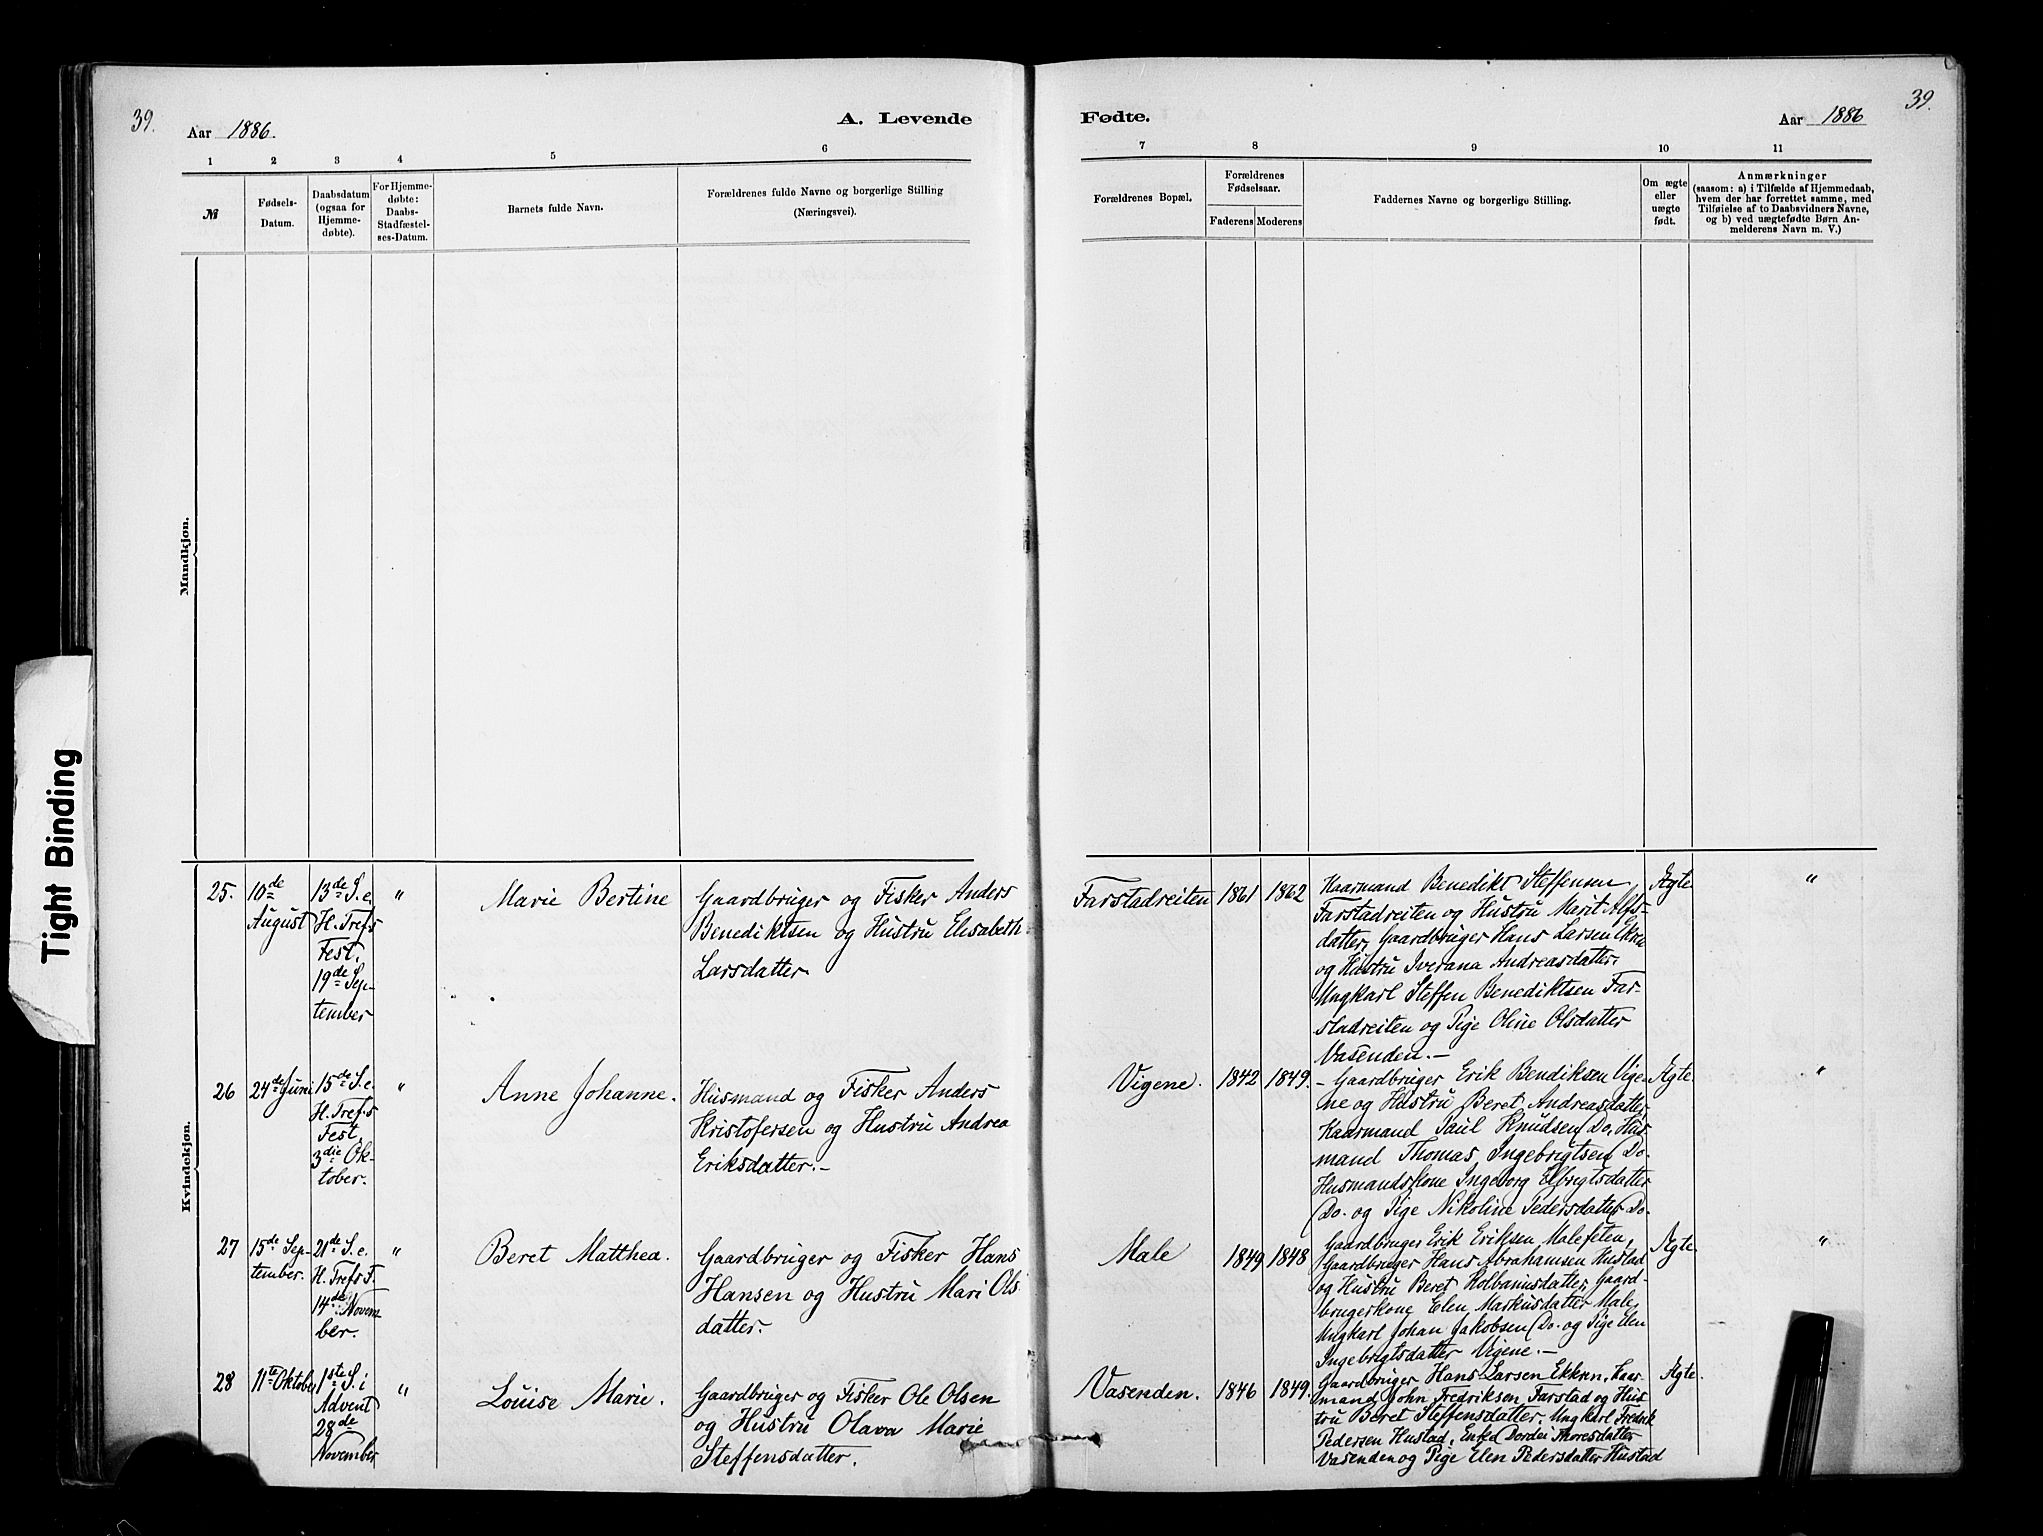 39.
Aar 1886.
A. Levende
Fødte.
Aar 1886
39.
1 2 3 4 5 6
7 8 9 10 11
№
Fødsels-
Datum.
Daabsdatum
(ogsaa for
Hjemme-
døbte).
For Hjemme-
døbte:
Daabs-
Stadfæstel-
ses-Datum.
Barnets fulde Navn.
Forældrenes fulde Navne og borgerlige Stilling
(Næringsvei).
Forældrenes Bopæl.
Forældrenes
Fødselsaar.
Faderens Moderens
Faddernes Navne og borgerlige Stilling.
Om ægte
eller
uægte
født.
Anmærkninger
(saasom: a) i Tilfælde af Hjemmedaab,
hvem der har forrettet samme, med
Tilføielse af to Daabsvidners Navne,
og b) ved uægtefødte Børn An-
melderens Navn m. V.)
Mandkjøn.
Kvindekjøn.
Tight Binding
25.
10de
August
13de S. e.
H. Tref.s
Fest.
19de Sep-
tember
"
Marie Bertine
Gaardbruger og Fisker Anders
Benediktsen og Hustru Elisabeth
Larsdatter.
Farstadreiten
1861
1862
Kaarmand Benedikt Steffensen
Farstadreiten og Hustru Merit Alfs-
datter, Gaardbruger Hans Larsen Ekren
og Hustru Iverana Andreasdatter.
Ungkarl Steffen Benediktsen Far-
stadreiten og Pige Oline Olsdatter
Vasenden.-
Ægte
"
26
24de Juni
15de S. e.
H. Tref.s
Fest.
3die Ok-
tober.
"
Anne Johanne.
Husmand og Fisker Anders
Kristofersen og Hustru Andrea
Eriksdatter.-
Vigene.
1842
1849.
- Gaardbruger Erik Bendiksen Vige-
ne og Hustru Beret Andreasdatter,
Kaarmand Paul Knudsen Do, Hus-
mand Thomas Ingebrigtsen Do.
Husmandskone Ingeborg Elbrigtsdatter
Do. og Pige Nikoline Pedersdatter Do.
Ægte.
"
27
15de Sep-
tember.
21de S. e.
H. Tref.s F.
14de Novem-
ber.
"
Beret Matthea.
Gaardbruger og Fisker Hans
Hansen og Hustru Mari Ols-
datter.
Male
1849
1848
Gaardbruger Erik Eriksen Malefeten,
Gaardbruger Hans Abrahamsen Hustad
og Hustru Beret Kolbanusdatter, Gaard-
brugerkone Elen Markusdatter Male,
Ungkarl Johan Jakobsen Do. og Pige Elen
Ingebrigtsdatter Vigene.-
Ægte.
"
28
11te Oktober
1ste S. i
Advent
28de
November
"
Louise Marie.
Gaardbruger og Fisker Ole Olsen
og Hustru Olava Marie
Steffensdatter.
Vasenden.
1846
1849.
Gaardbruger Hans Larsen Ekren, Kaar-
mand John Fredriksen Farstad og Hus-
tru Beret Steffensdatter, Ungkarl Fredrik
Pedersen Hustad, Enke Dordei Thoresdatter
Vasenden og Pige Elen Pedersdatter Hustad
Ægte.